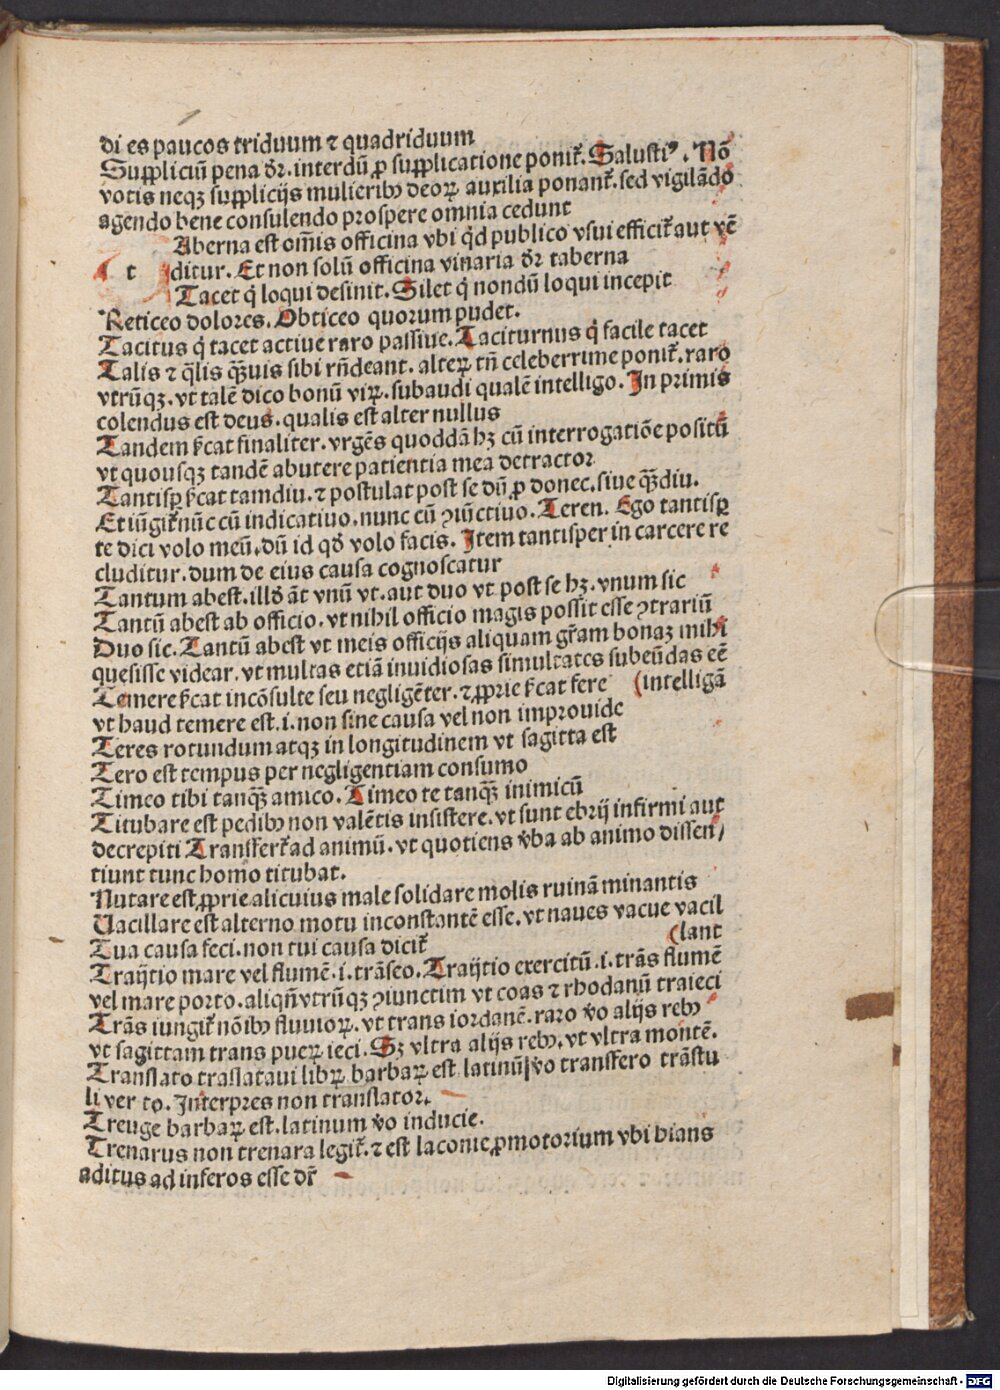 di es paucos triduum ⁊ quadriduum
Suppliciū pena dr̄. interdū ꝓ supplicatione ponit̄. Salustiꝰ. Nō
votis neqꝫ supplicijs mulieribꝰ deoꝝ auxilia ponant̄. sed vigilādo
agendo bene consulendo prospere omnia cedunt
t Aberna est om̄is officina vbi qd̄ publico vsui efficit̄ aut vē
ditur. Et non solū officina vinaria dr̄ taberna
Tacet q̇ loqui desinit. Silet q̇ nondū loqui incepit
Reticeo dolores. Obticeo quorum pudet.
Tacitus q̇ tacet actiue raro passiue. Taciturnus q̇ facile tacet
Talis ⁊ q̄lis qꝫ̄uis sibi rn̄deant. alteꝝ tn̄ celeberrime ponit̄. raro
vtrūqꝫ. vt talē dico bonū viꝝ. subaudi qualē intelligo. In primis
colendus est deus. qualis est alter nullus
Tandem s̄cat finaliter. vrgēs quoddā hꝫ cū interrogatiōe positū
vt quousqꝫ tandē abutere patientia mea detractor
Tantisꝑ s̄cat tamdiu. ⁊ postulat post se dū ꝓ donec. siue qꝫ̄diu.
Et iūgit̄ nūc cū indicatiuo. nunc cū ꝯiūctiuo. Teren. Ego tantisꝑ
te dici volo meū. dū id qd̄ volo facis. Item tantisper in carcere re
cluditur. dum de eius causa cognoscatur
Tantum abest. illd̄ āt vnū vt. aut duo vt post se hꝫ. vnum sic
Tantū abest ab officio. vt nihil officio magis possit esse ꝯtrariū
Duo sic. Tantū abest vt meis officijs aliquam gr̄am bonaꝫ mihi
quesisse videar. vt multas etiā inuidiosas simultates subeūdas eē
Temere s̄cat incōsulte seu negligēter. ⁊ ꝓprie s̄cat fere (intelligā
vt haud temere est. i. non sine causa vel non improuide
Teres rotundum atqꝫ in longitudinem vt sagitta est
Tero est tempus per negligentiam consumo
Timeo tibi tanqꝫ̄ amico. Timeo te tanqꝫ̄ inimicū
Titubare est pedibꝰ non valētis insistere. vt sunt ebrij infirmi aut
decrepiti Transfert̄ ad animū. vt quotiens v̄ba ab animo dissen/
tiunt tunc homo titubat.
Nutare est ꝓprie alicuius male solidare molis ruinā minantis
Uacillare est alterno motu inconstantē esse. vt naues vacue vacil
Tua causa feci. non tui causa dicit̄ (lant
Traijtio mare vel flumē. i. trāseo. Traijtio exercitū. i. trās flumē
vel mare porto. aliqn̄ vtrūqꝫ ꝯiunctim vt coas ⁊ rhodanū traieci
Trās iungit̄ nōibꝰ fluuioꝝ. vt trans iordanē. raro v̄o alijs rebꝰ
vt sagittam trans pueꝝ ieci. Sꝫ vltra alijs rebꝰ. vt vltra montē.
Translato traslataui libꝝ barbaꝝ est latinū v̄o transfero trāstu
li ver to. Interpres non translator.
Treuge barbaꝝ est. latinum v̄o inducie.
Trenarus non trenara legit̄. ⁊ est laconie ꝓmotorium vbi hians
aditus ad inferos esse dr̄
Digitalisierung gefördert durch die Deutsche Forschungsgemeinschaft - DFG